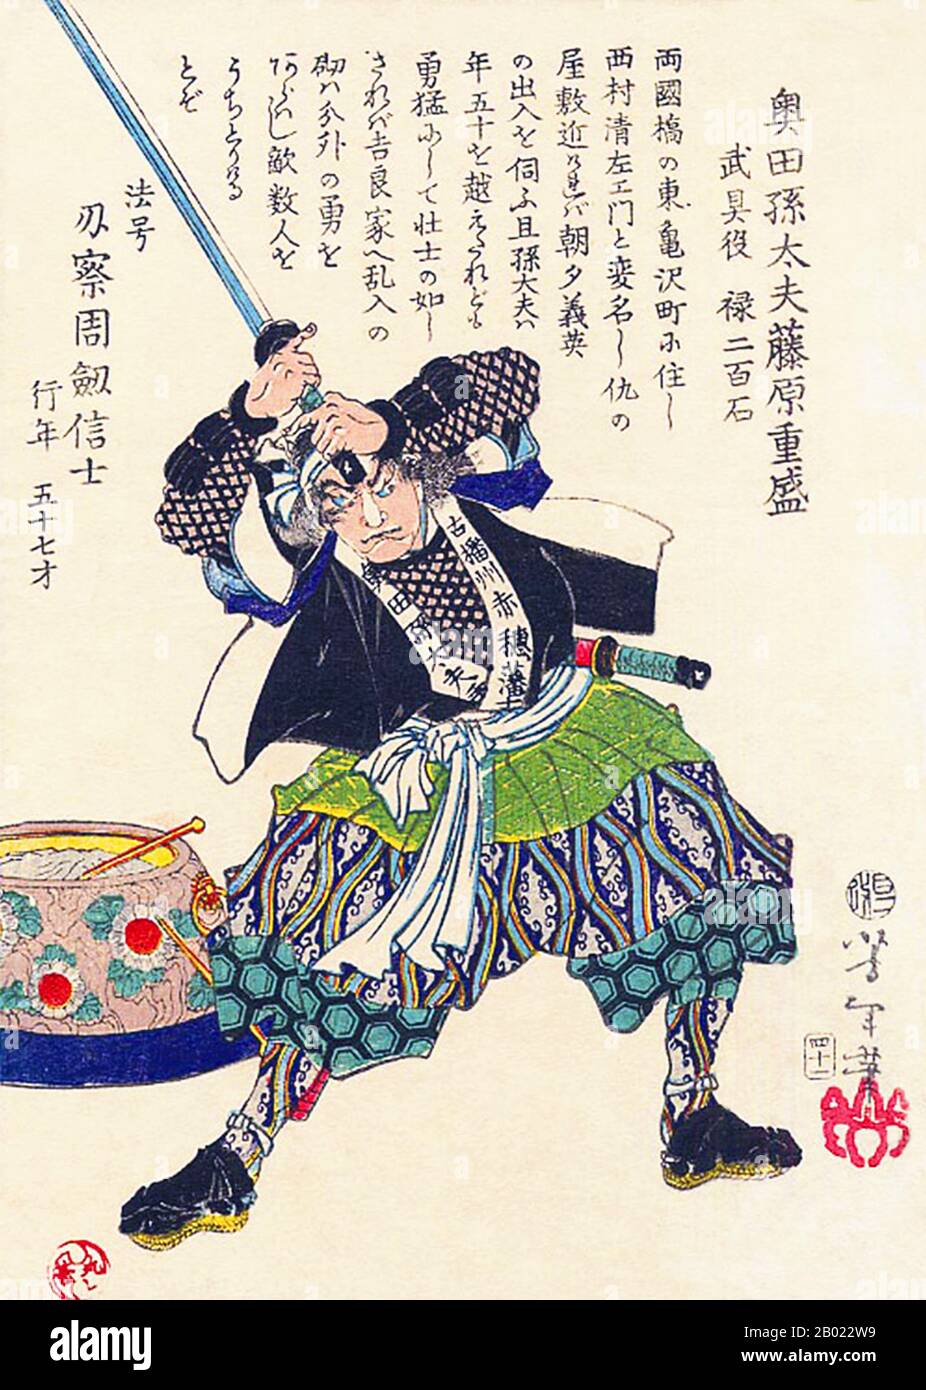 奥田孫太夫藤原重盛
武具役 禄二百石
両國橋の東亀沢町に住し
西村清左エ門と変名し仇の
屋敷近ければ朝夕義英
の出入を伺ふ且孫大夫ハ
年五十を越えたれども
勇猛にして壮士の如し
されバ吉良家へ乱入の
砌ハ分外の勇を
あらハし敵数人を
うちとりける
とぞ
法号
刃察周劔信士
行年 五十七才
古播州赤穂藩士
奥田孫太夫
芳年筆
四十一
alamy
Image ID: 2B022W9
www.alamy.com